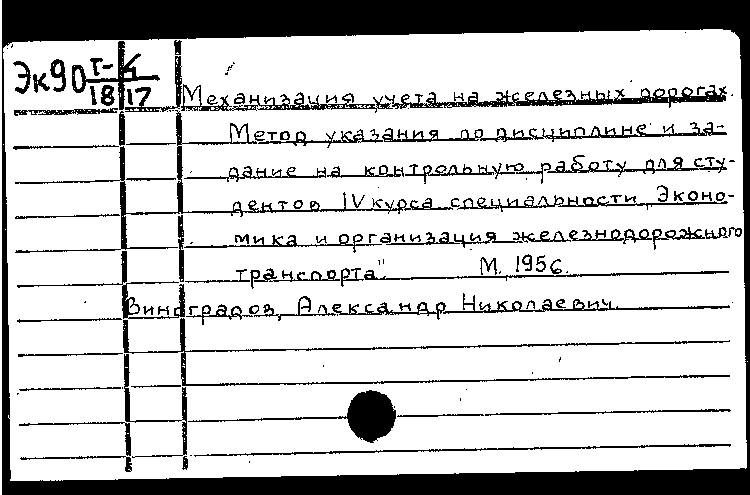 Эк90 Т-4
18 17
Механизация учета на железных дорогах.
Метод указания по дисциплине и за-
дание на контрольную работу для сту-
дентов IV курса специальности „Эконо-
мика и организация железнодорожного
транспорта". М. 1956.
Виноградов, Александр Николаевич.